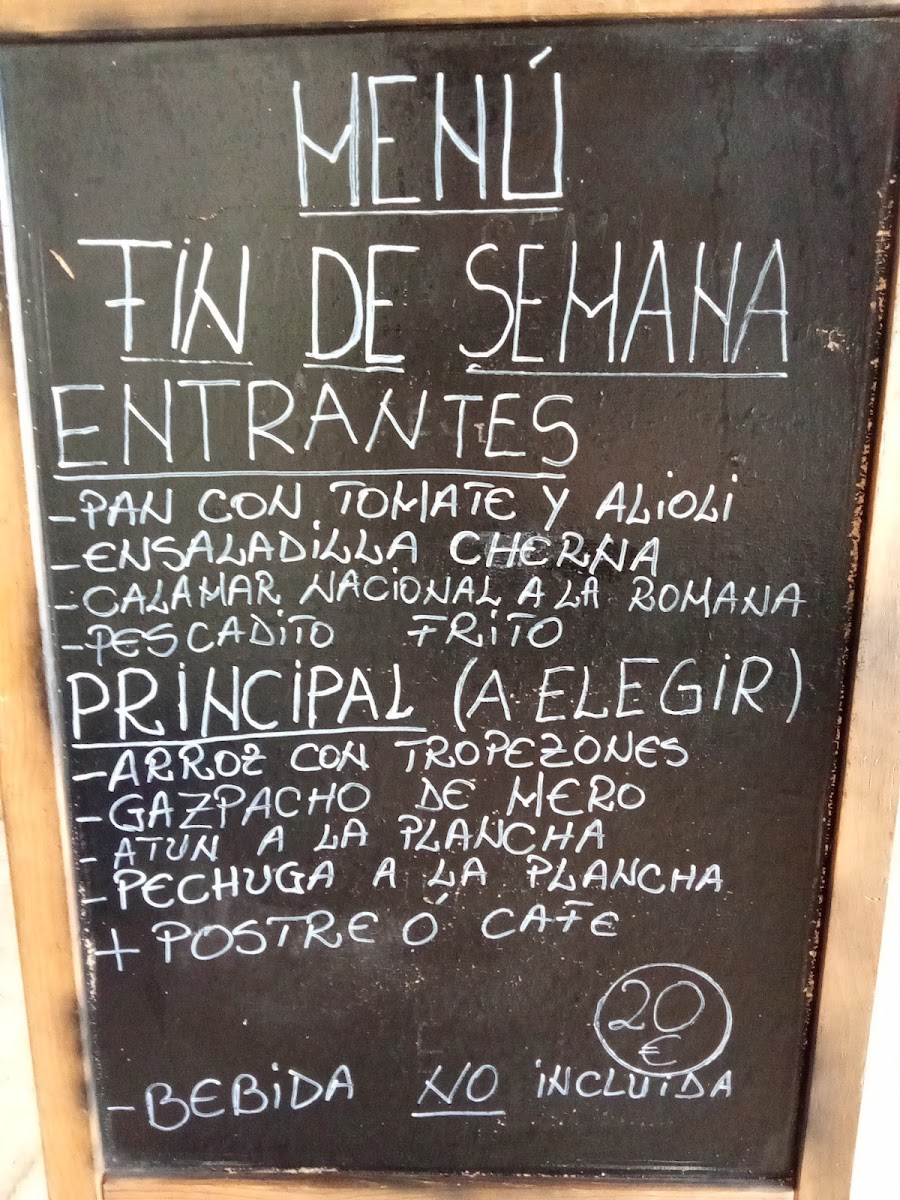 MENÚ
FIN DE SEMANA
ENTRANTES
-PAN CON TOMATE Y ALIOLI
-ENSALADILLA CHERNA
-CALAMAR NACIONAL A LA ROMANA
-PESCADITO FRITO
PRINCIPAL (A ELEGIR)
-ARROZ CON TROPEZONES
-GAZPACHO DE MERO
-ATUN A LA PLANCHA
-PECHUGA A LA PLANCHA
+ POSTRE Ó CAFE
20
€
-BEBIDA NO INCLUIDA